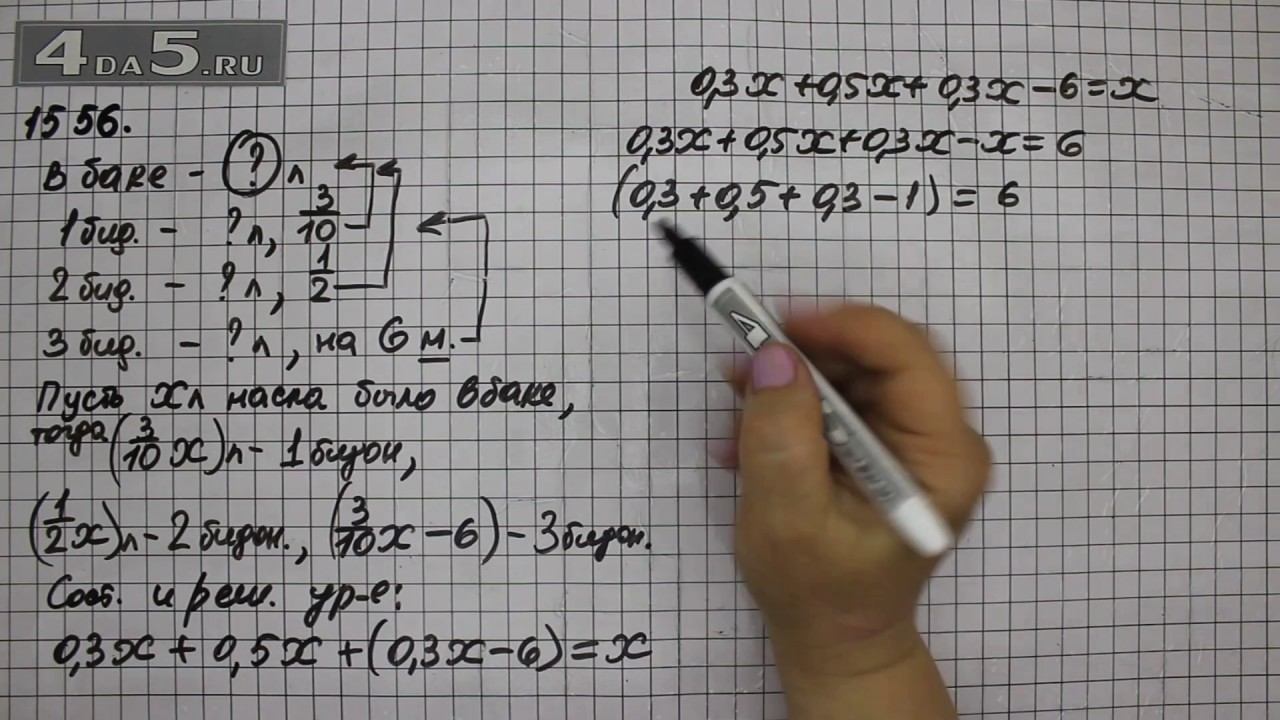 4DA5.RU
1556.
В баке - ? л
1 бид. - ? л, 3/10
2 бид. - ? л, 1/2
3 бид. - ? л, на 6 м.
Пусть x л масла было в баке,
тогда (3/10 x) л - 1 бидон,
(1/2 x) л - 2 бидон., (3/10 x - 6) - 3 бидон.
Сост. и реш. ур-е:
0,3x + 0,5x + (0,3x - 6) = x
0,3x + 0,5x + 0,3x - 6 = x
0,3x + 0,5x + 0,3x - x = 6
(0,3 + 0,5 + 0,3 - 1) = 6